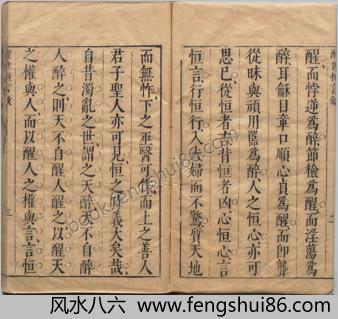 醒而悖逆為醉節檢為醒而淫蕩為
醉耳龢目章口順心貞為醒而即聾
從昧與頑用嚚為醉人之恒心亦可
思已從恒者吉背恒者凶心恒心言
恒言行恒行入夫婦而不驚質天地
而無怍下之巫醫可作而上之善人
君子聖人亦可見恒之時義大矣哉
自昔濁亂之世謂之天醉天不自醉
人醉之則天不自醒人醒之以醒天
之權與人而以醒人之權與言言恒
三
风水八六 www.fengshui86.com